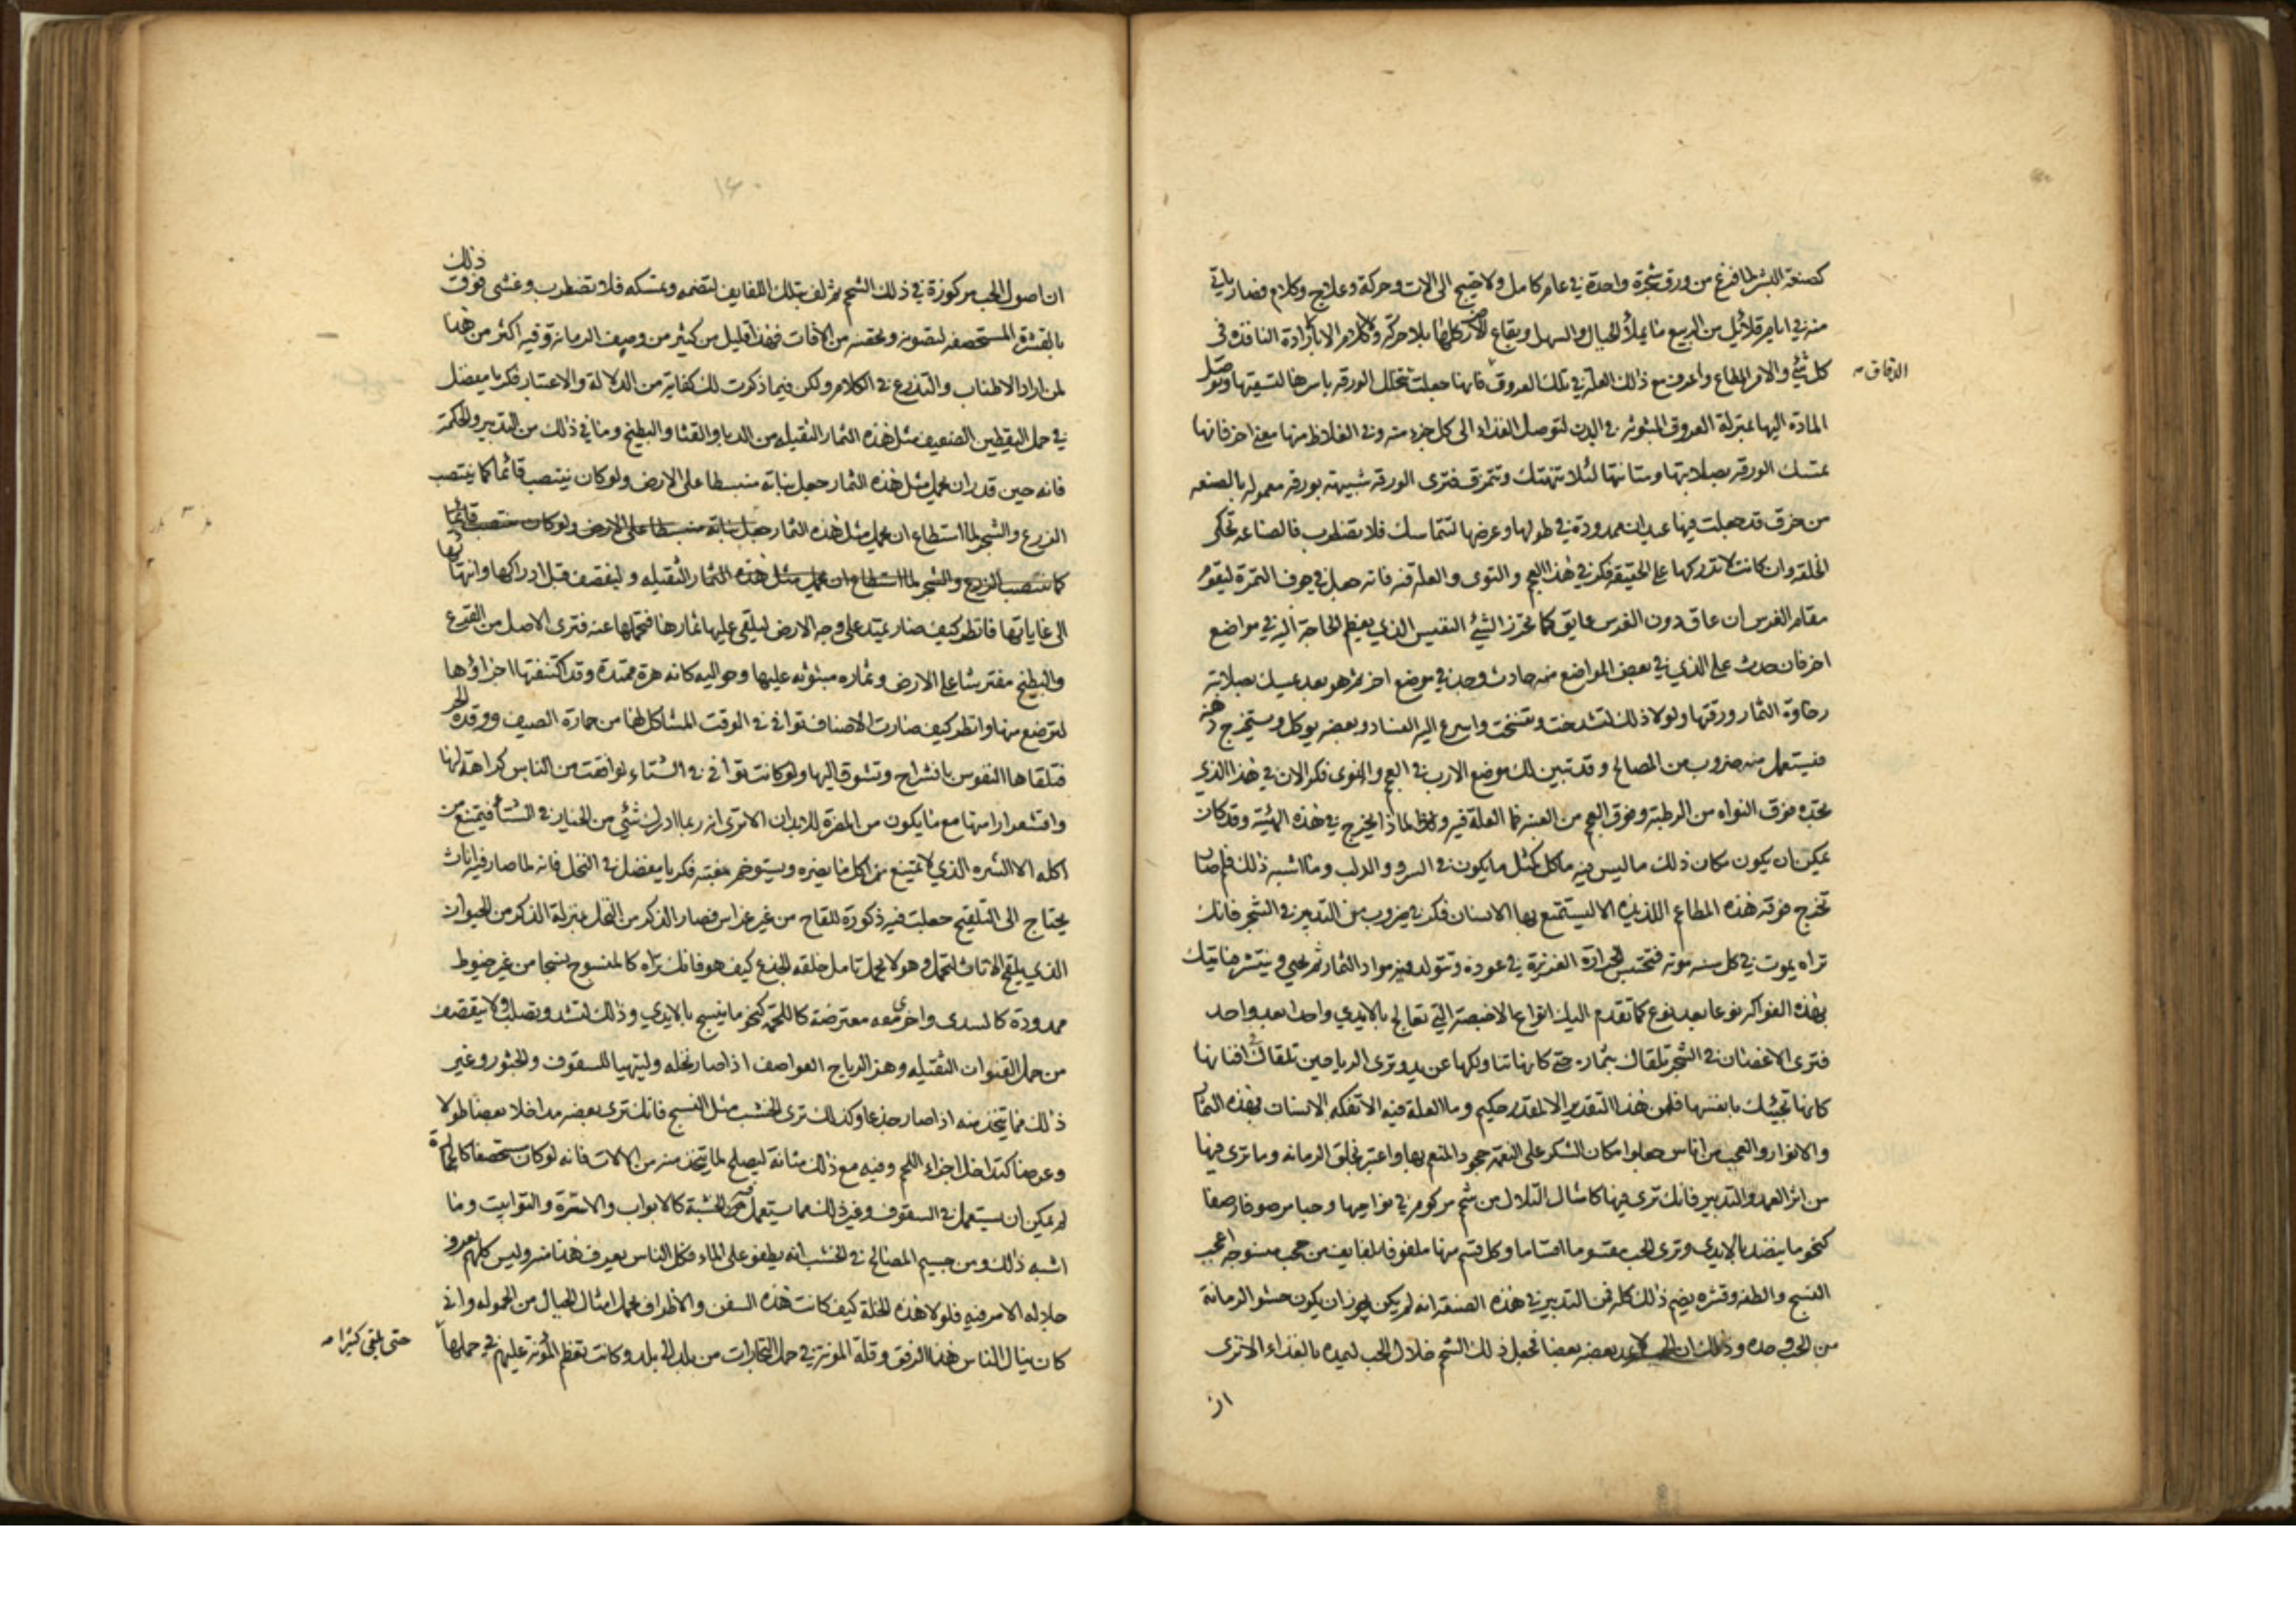 كصنعة البشر لما فرغ من ورق شجرة واحدة في عام كامل ولاحتيج الى الات وحركة وعلاج وكلام فصار ياتي
منه في ايام قلائل من الربيع ما يملأ الجبال والسهل وبقاع الارض كلها بلا حركة ولا كلام الا بالارادة النافذة في
كل شئ والامر المطاع واعرف مع ذلك العلة في تلك العروق فانها جعلت تتخلل الورقه باسرها لتسقيها وتوصل
الدقاق
المادة اليها بمنزلة العروق المبثوثه في البدن لتوصل الغذاء الى كل جزء منه وفي الغلاظ منها معنى اخر فانها
تمسك الورقه بصلابتها ومتانتها لئلا تنهتك وتتمزق فترى الورقه شبيهة بورقه معموله بالصنعه
من خرق قد جعلت فيها عيدان ممدودة في طولها وعرضها لتتماسك فلا تضطرب فالصناعه تحكى
الخلقه وان كانت لا تدركها على الحقيقه فكر في هذا العجم والنوى والعلة فيه فانه جعل في جوف الثمرة ليقوم
مقام الغرس ان عاق دون الغرس عايق كما يحرز الشئ النفيس الذي يعظم الحاجة اليه في مواضع
اخر فان حدث على الذي في بعض المواضع منه حادث وجد في موضع اخر ثم هو بعد يمسك بصلابته
رخاوة الثمار ورقتها ولولا ذلك لتشدخت وتفسخت واسرع اليه الفساد وبعضه يوكل ويستخرج دهنه
فيستعمل منه ضروب من المصالح وقد تبين لك موضع الارب في العجم والنوى فكر الان في هذا الذي
تجده فوق النواه من الرطبة وفوق العجم من العنبه فما العلة فيه ولماذا يخرج في هذه الهيئة وقد كان
يمكن ان يكون مكان ذلك ما ليس فيه ماكل كمثل ما يكون في السرو والدلب وما اشبه ذلك فلم صار
تخرج فوقه هذه المطاعم اللذيذه الا ليستمتع بها الانسان فكر في ضروب من التدبير في الشجر فانك
تراه يموت في كل سنه موته فتحتبس الحرارة الغريزة في عوده وتتولد فيه مواد الثمار ثم تحيى وينتشر فتاتيك
بهذه الفواكه نوعا بعد نوع كما تقدم اليك انواع الاخبصة التي تعالج بالايدي واحدا بعد واحد
فترى الاغصان في الشجر تلقاك بثمارها حتى كانها تناولكها عن يد وترى الرياحين تلقاك في افنانها
كانها تجيئك بانفسها فلمن هذا التقدير الا لمقدر حكيم وما العلة فيه الا تفكه الانسان بهذه الثمار
والانوار والعجب من اناس جعلوا مكان الشكر على النعمة جحود المنعم بها واعتبر بخلق الرمانه وما ترى فيها
من اثر العمد والتدبير فانك ترى فيها كامثال التلال من شحم مركوم في نواحيها وحبا مرصوفا رصفا
كنحو ما ينضد بالايدي وترى الحب مقسوما اقساما وكل قسم منها ملفوفا بلفايف من حجب منسوجه اعجب
النسج والطفه وقشره يضم ذلك كله فمن التدبير في هذه الصنعة انه لم يكن يجوز ان يكون حشو الرمانة
من الحب وحده وذلك ان الحب لا يمد بعضه بعضا فجعل ذلك الشحم خلال الحب ليمده بالغذاء الا ترى
ان
ان اصول الحب مركوزة في ذلك الشحم ثم لف بتلك اللفايف لتضمه وتمسكه فلا تضطرب وغشى فوق ذلك
بالقشرة المستحصفه لتصونه وتحصنه من الافات فهذا قليل من كثير من وصف الرمانة وفيه اكثر من هذا
لمن اراد الاطناب والتذرع في الكلام ولكن فيما ذكرت لك كفاية من الدلالة والاعتبار فكر يا مفضل
في حمل اليقطين الضعيف مثل هذه الثمار الثقيله من الدبا والقثا والبطيخ وما في ذلك من التدبير والحكمة
فانه حين قدر ان يحمل مثل هذه الثمار جعل نباته منبسطا على الارض ولو كان ينتصب قائما كما ينتصب
الزرع والشجر لما استطاع ان يحمل مثل هذه الثمار جعل نباته منبسطا على الارض ولو كان ينتصب قائما
كما ينتصب الزرع والشجر لما استطاع ان يحمل مثل هذه الثمار الثقيله ولينقصف قبل ادراكها وانتهائها
الى غاياتها فانظر كيف صار يمتد على وجه الارض ليلقى عليها ثمارها فتحملها عنه فترى الاصل من القرع
والبطيخ مفترشا على الارض وثماره مبثوثه عليها وحواليه كانه هرة ممتدة وقد اكتنفتها اجراؤها
لترضع منها وانظر كيف صارت الاصناف توافى في الوقت المشاكل لها من حمارة الصيف ووقدة الحر
فتلقاها النفوس بانشراح وتشوق اليها ولو كانت توافى في الشتاء لوافقت من الناس كراهة لها
واقشعرارا منها مع ما يكون من المضرة للابدان الا ترى انه ربما ادرك شئ من الخيار في الشتأ فيمتنع من
اكله الا الشره الذي لا يمتنع من اكل ما يضره ويستوخم مغبته فكر يا مفضل في النخل فانه لما صار فيه اناث
يحتاج الى التلقيح جعلت فيه ذكورة للقاح من غير غراس فصار الذكر من النخل بمنزلة الذكر من الحيوان
الذي يلقح الاناث لتحمل وهو لا يحمل تامل خلقه الجذع كيف هو فانك تراه كالمنسوج نسجا من غير خيوط
ممدودة كالسدى واخرى معه معترضة كاللحمة كنحو ما ينسج بالايدي وذلك لتشد وتصلب ولا ينقصف
من حمل القنوان الثقيله وهز الرياح العواصف اذا صار نخله وليتهيا للسقوف والجسور وغير
ذلك مما يتخذ منه اذا صار جذعا وكذلك ترى الخشب مثل النسج فانك ترى بعضه مداخلا بعضا طولا
وعرضا كتداخل اجزاء اللحم وفيه مع ذلك متانة ليصلح لما يتخذ منه من الالات فانه لو كان مستحصفا كالحجارة
لم يمكن ان يستعمل في السقوف وغير ذلك مما يستعمل فيه الخشبة كالابواب والاسرة والتوابيت وما
اشبه ذلك ومن جسيم المصالح في الخشب انه يطفو على الماء فكل الناس يعرف هذا منه وليس كلهم يعرف
جلالة الامر فيه فلولا هذه الخلة كيف كانت هذه السفن والاظراف تحمل امثال الجبال من الحموله وانى
كان ينال الناس هذا الرفق وقلة المونة في حمل التجارات من بلد الى بلد وكانت تعظم المؤنة عليهم في حملها
حتى يلقى كثيرا